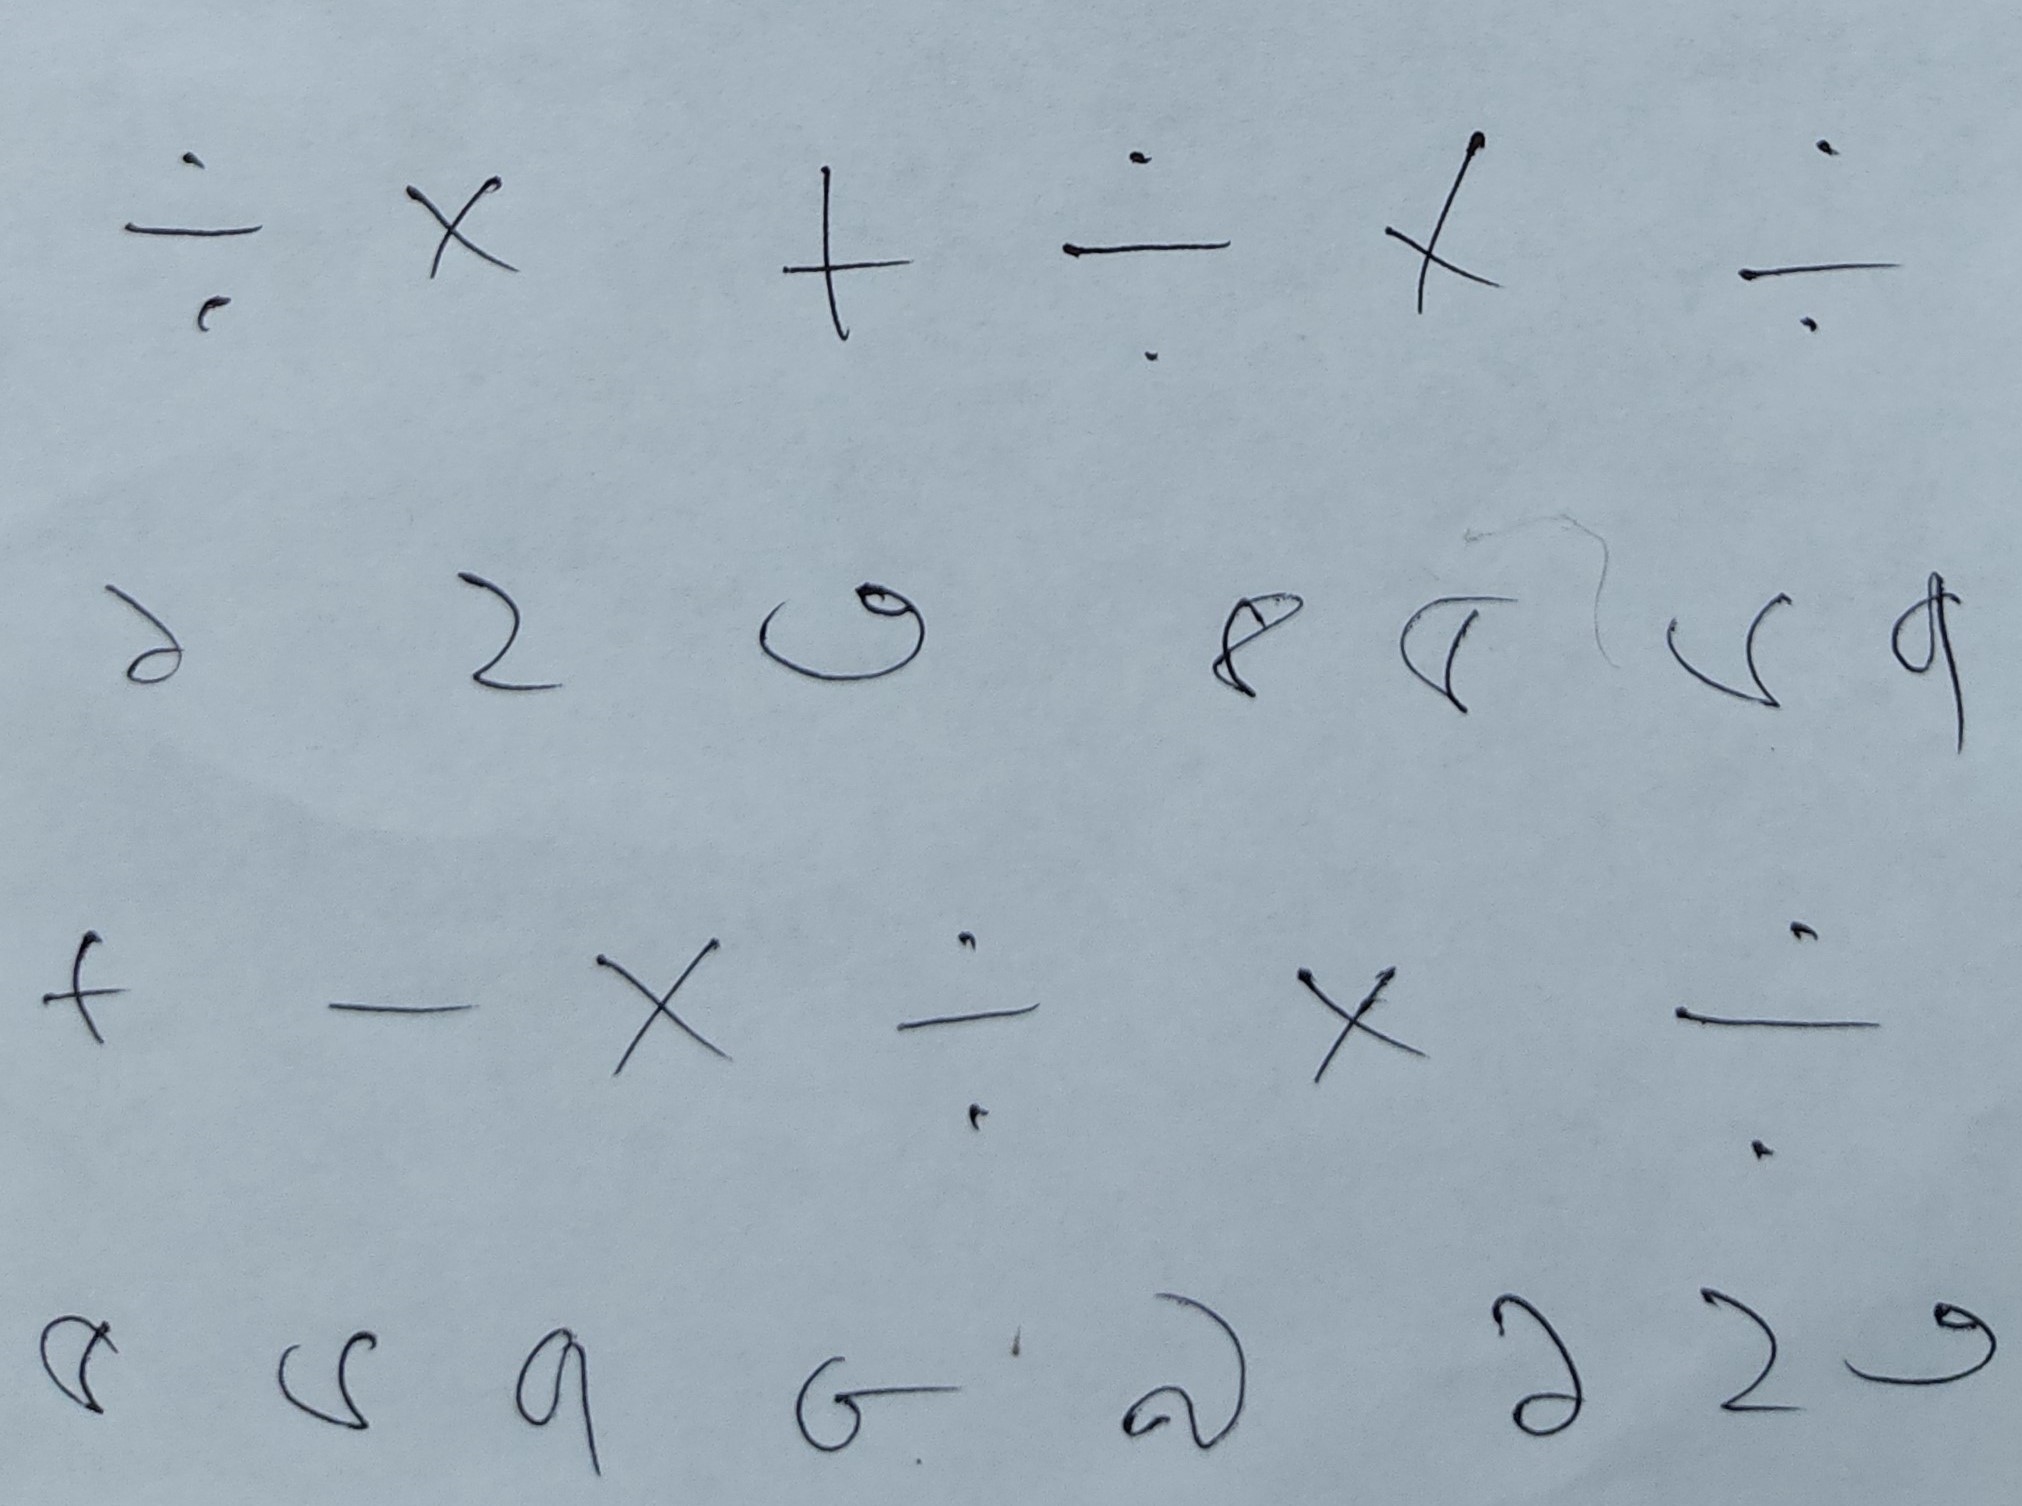 ÷ × + ÷ × ÷
১ ২ ৩ ৪ ৫ ৬ ৭
+ − × ÷ × ÷
৫ ৬ ৭ ৮ ৯ ১ ২ ৩